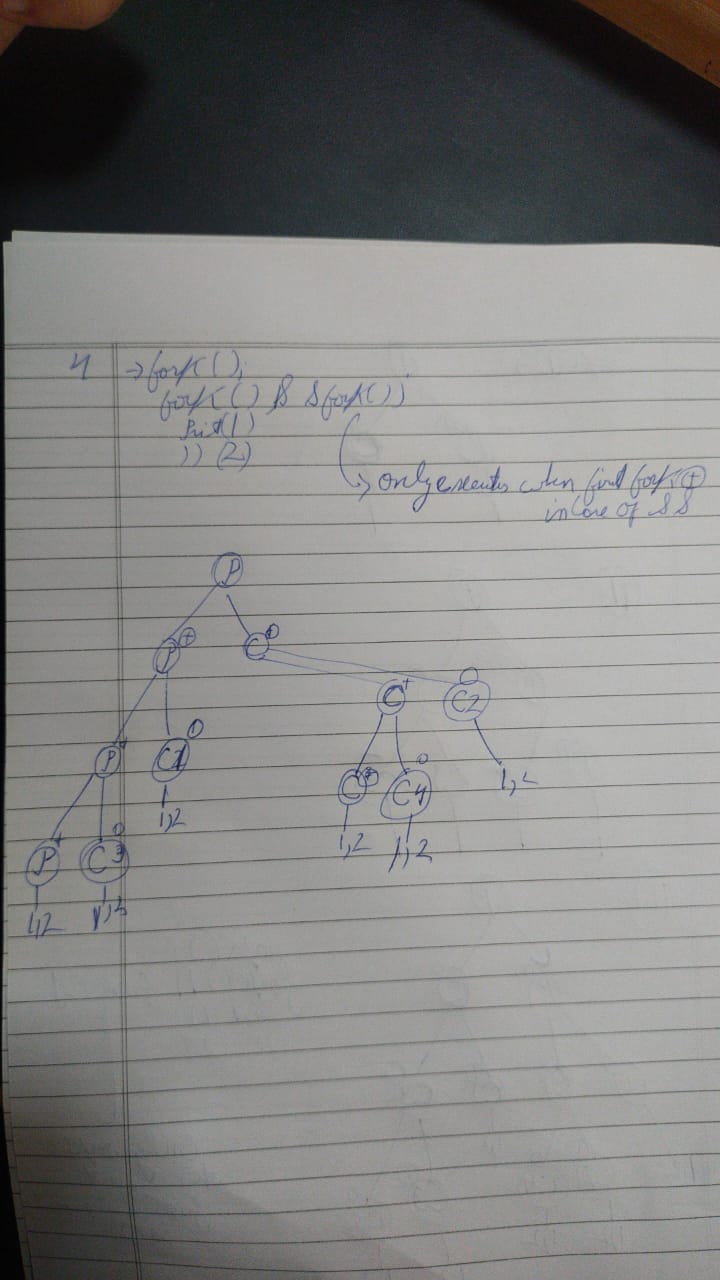 4 → fork();
fork() && fork())
Print(1)
)) (2)
→ only executes when first fork +
in case of &&
P
P + C 0
C + C2 0
P + C1 0
C + C4 0
1,2
1,2
1,2 1,2
P + C3 0
1,2 1,2